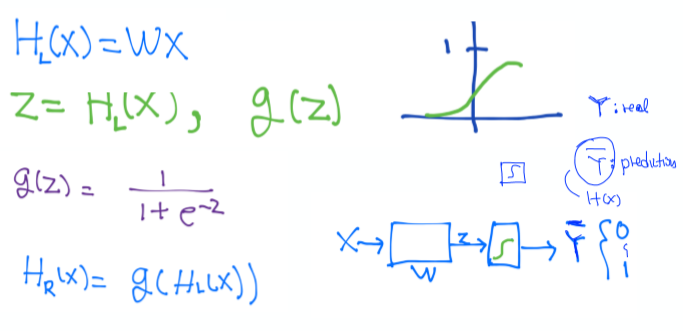 H_L(X) = WX
z = H_L(X), g(z)
g(z) = 1 / (1 + e^-2)
H_R(X) = g(H_L(X))
1
Y : real
Y̅ : prediction
H(x)
X → W z → → Y̅ { 0 1